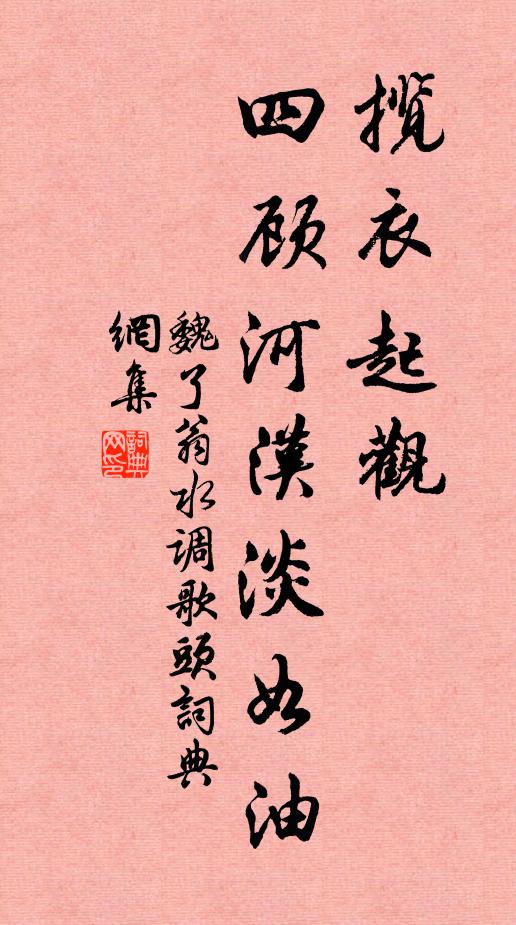 攬衣起觀
四顾河漢淡如油
魏了翁水调歌頭詞典
網集
詞典
网印